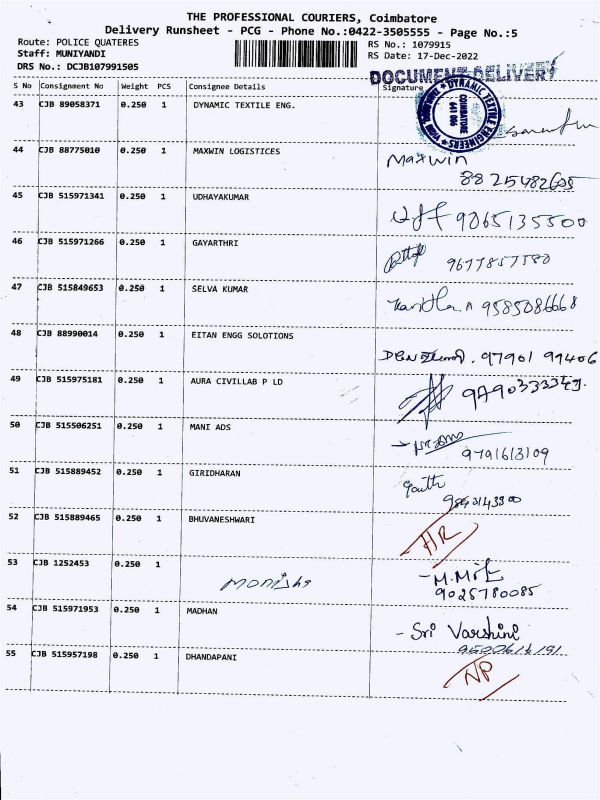 THE PROFESSIONAL COURIERS, Coimbatore
Delivery Runsheet - PCG - Phone No.:0422-3505555 - Page No.:5
Route: POLICE QUATERES
RS No.: 1079915
Staff: MUNIYANDI
RS Date: 17-Dec-2022
DRS No.: DCJB107991505
DOCUMENT DELIVERY
S No Consignment No Weight PCS Consignee Details Signature
43 CJB 89058371 0.250 1 DYNAMIC TEXTILE ENG.
DYNAMIC TEXTILE ENGINEERS
COIMBATORE
44 CJB 88775010 0.250 1 MAXWIN LOGISTICES Maxwin
8825482605
45 CJB 515971341 0.250 1 UDHAYAKUMAR 9065135500
46 CJB 515971266 0.250 1 GAYARTHRI 9677857580
47 CJB 515849653 0.250 1 SELVA KUMAR 9585086668
48 CJB 88990014 0.250 1 EITAN ENGG SOLOTIONS 97901 99406
49 CJB 515975181 0.250 1 AURA CIVILLAB P LD
50 CJB 515506251 0.250 1 MANI ADS
9791613109
51 CJB 515889452 0.250 1 GIRIDHARAN
52 CJB 515889465 0.250 1 BHUVANESHWARI HR
53 CJB 1252453 0.250 1 Monisha
9025780085
54 CJB 515971953 0.250 1 MADHAN - Sri Varshini
55 CJB 515957198 0.250 1 DHANDAPANI NP